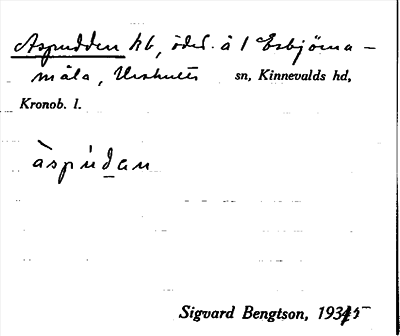 Aspudden hb, öded. å 1 Esbjörna-
måla, Urshults sn, Kinnevalds hd,
Kronob. l.
àspúdan
Sigvard Bengtson, 1935